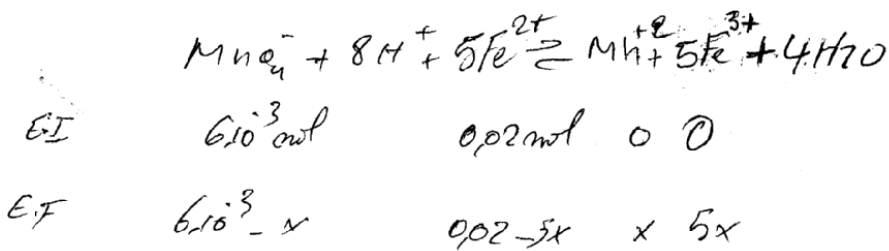 MnO₄⁻ + 8H⁺ + 5Fe²⁺ ⇌ Mn⁺² + 5Fe³⁺ + 4H2O
E.I 6.10⁻³ mol 0,02 mol 0 0
E.F 6.10⁻³ - x 0,02 - 5x x 5x